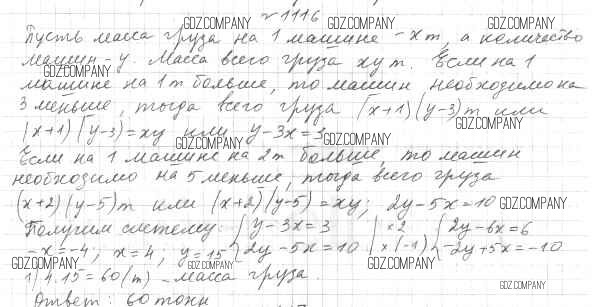 № 1116
GDZ.COMPANY GDZ.COMPANY GDZ.COMPANY
Пусть масса груза на 1 машине - x т, а количество
машин - y. Масса всего груза xy т. Если на 1
GDZ.COMPANY
машине на 1 т больше, то машин необходимо на
3 меньше, тогда всего груза (x+1)(y-3) т или
GDZ.COMPANY
(x+1)(y-3)=xy или y-3x=3
GDZ.COMPANY GDZ.COMPANY
Если на 1 машине на 2 т больше, то машин
необходимо на 5 меньше, тогда всего груза
(x+2)(y-5) т или (x+2)(y-5)=xy; 2y-5x=10 GDZ.COMPANY
Получим систему: {y-3x=3 |×2 {2y-6x=6
-x=-4; x=4; y=15 {2y-5x=10 |×(-1) {-2y+5x=-10
GDZ.COMPANY GDZ.COMPANY GDZ.COMPANY
1) 4·15=60(т) - масса груза.
GDZ.COMPANY
Ответ: 60 тонн